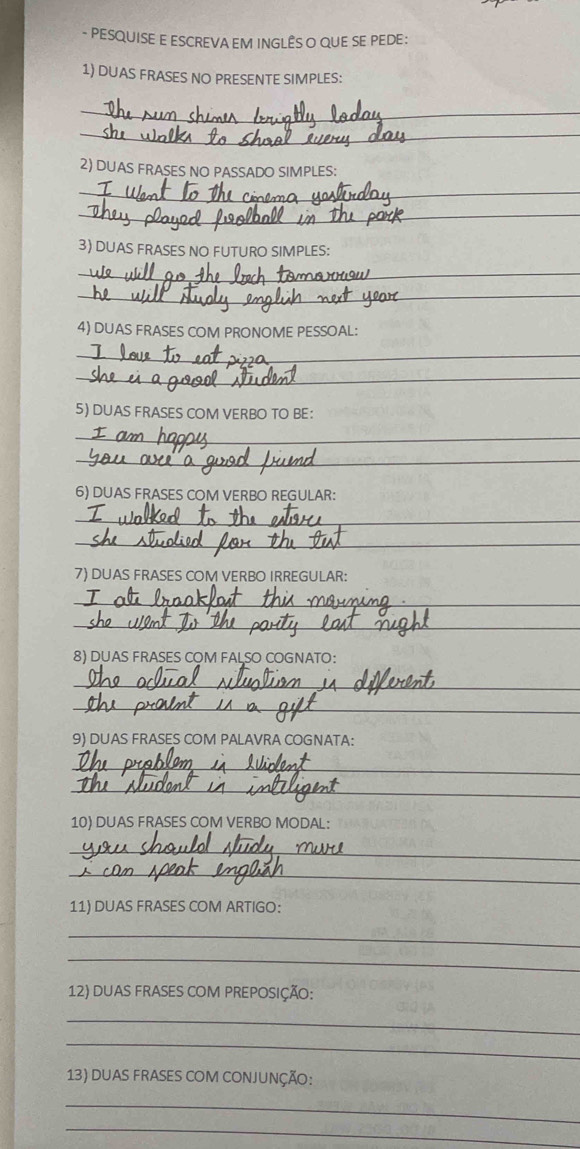 - PESQUISE E ESCREVA EM INGLÊS O QUE SE PEDE:
1) DUAS FRASES NO PRESENTE SIMPLES:
The sun shines brightly today
she walks to shool every day
2) DUAS FRASES NO PASSADO SIMPLES:
I Went to the cinema yasterday
They played football in the park
3) DUAS FRASES NO FUTURO SIMPLES:
we will go the bech tomorrow
he will study english next year
4) DUAS FRASES COM PRONOME PESSOAL:
I Love to eat pizza
she is a good student
5) DUAS FRASES COM VERBO TO BE:
I am happy
you are a good friend
6) DUAS FRASES COM VERBO REGULAR:
I walked to the estore
she studied for the test
7) DUAS FRASES COM VERBO IRREGULAR:
I ate breakfast this morning.
she went to the party last night
8) DUAS FRASES COM FALSO COGNATO:
the actual situation is different
the present is a gift
9) DUAS FRASES COM PALAVRA COGNATA:
The problem is evident
The student is inteligent
10) DUAS FRASES COM VERBO MODAL:
you should study more
i can speak english
11) DUAS FRASES COM ARTIGO:
12) DUAS FRASES COM PREPOSIÇÃO:
13) DUAS FRASES COM CONJUNÇÃO: